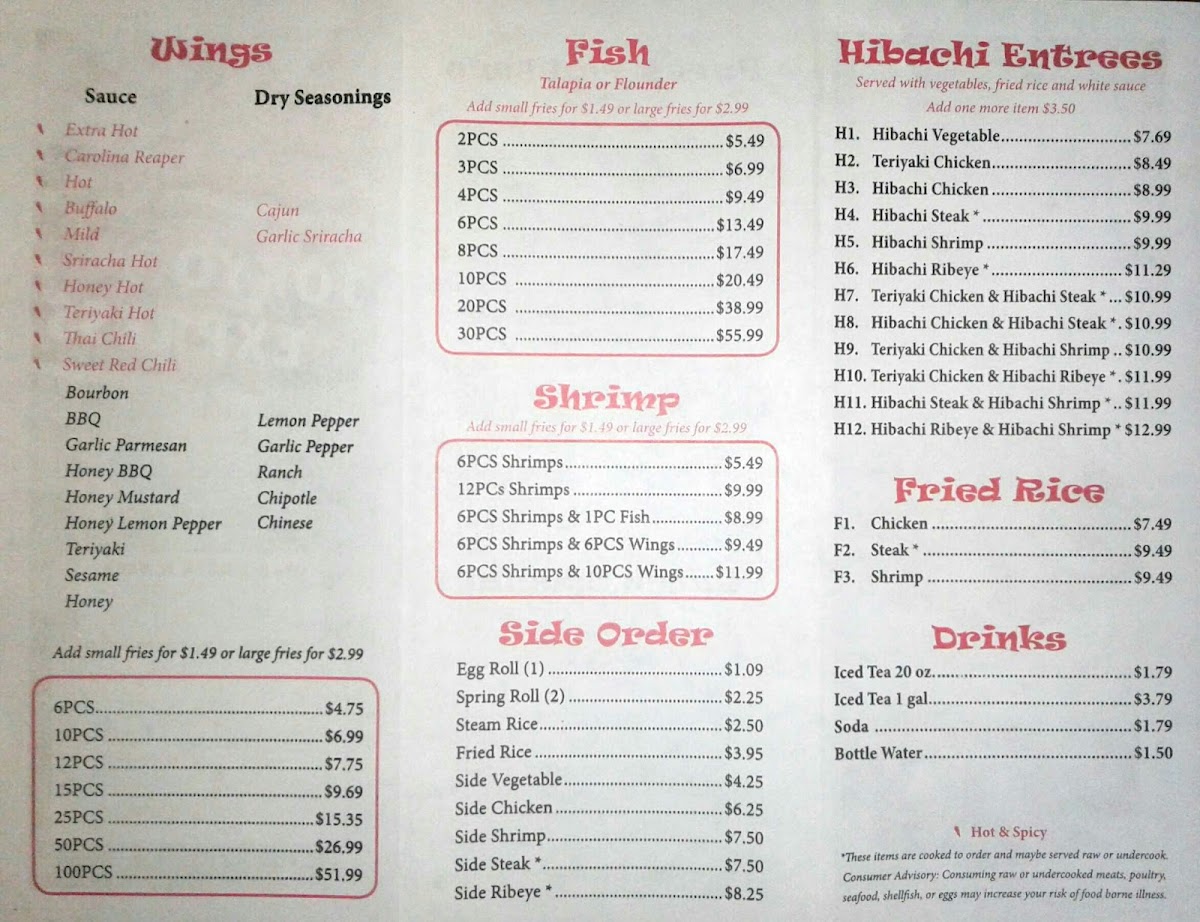 Wings
Sauce Dry Seasonings
Extra Hot
Carolina Reaper
Hot
Buffalo Cajun
Mild Garlic Sriracha
Sriracha Hot
Honey Hot
Teriyaki Hot
Thai Chili
Sweet Red Chili
Bourbon
BBQ Lemon Pepper
Garlic Parmesan Garlic Pepper
Honey BBQ Ranch
Honey Mustard Chipotle
Honey Lemon Pepper Chinese
Teriyaki
Sesame
Honey
Add small fries for $1.49 or large fries for $2.99
6PCS $4.75
10PCS $6.99
12PCS $7.75
15PCS $9.69
25PCS $15.35
50PCS $26.99
100PCS $51.99
Fish
Talapia or Flounder
Add small fries for $1.49 or large fries for $2.99
2PCS $5.49
3PCS $6.99
4PCS $9.49
6PCS $13.49
8PCS $17.49
10PCS $20.49
20PCS $38.99
30PCS $55.99
Shrimp
Add small fries for $1.49 or large fries for $2.99
6PCS Shrimps $5.49
12PCs Shrimps $9.99
6PCS Shrimps & 1PC Fish $8.99
6PCS Shrimps & 6PCS Wings $9.49
6PCS Shrimps & 10PCS Wings $11.99
Side Order
Egg Roll (1) $1.09
Spring Roll (2) $2.25
Steam Rice $2.50
Fried Rice $3.95
Side Vegetable $4.25
Side Chicken $6.25
Side Shrimp $7.50
Side Steak * $7.50
Side Ribeye * $8.25
Hibachi Entrees
Served with vegetables, fried rice and white sauce
Add one more item $3.50
H1. Hibachi Vegetable $7.69
H2. Teriyaki Chicken $8.49
H3. Hibachi Chicken $8.99
H4. Hibachi Steak * $9.99
H5. Hibachi Shrimp $9.99
H6. Hibachi Ribeye * $11.29
H7. Teriyaki Chicken & Hibachi Steak * $10.99
H8. Hibachi Chicken & Hibachi Steak * $10.99
H9. Teriyaki Chicken & Hibachi Shrimp $10.99
H10. Teriyaki Chicken & Hibachi Ribeye * $11.99
H11. Hibachi Steak & Hibachi Shrimp * $11.99
H12. Hibachi Ribeye & Hibachi Shrimp * $12.99
Fried Rice
F1. Chicken $7.49
F2. Steak * $9.49
F3. Shrimp $9.49
Drinks
Iced Tea 20 oz. $1.79
Iced Tea 1 gal. $3.79
Soda $1.79
Bottle Water $1.50
Hot & Spicy
*These items are cooked to order and maybe served raw or undercook.
Consumer Advisory: Consuming raw or undercooked meats, poultry,
seafood, shellfish, or eggs may increase your risk of food borne illness.